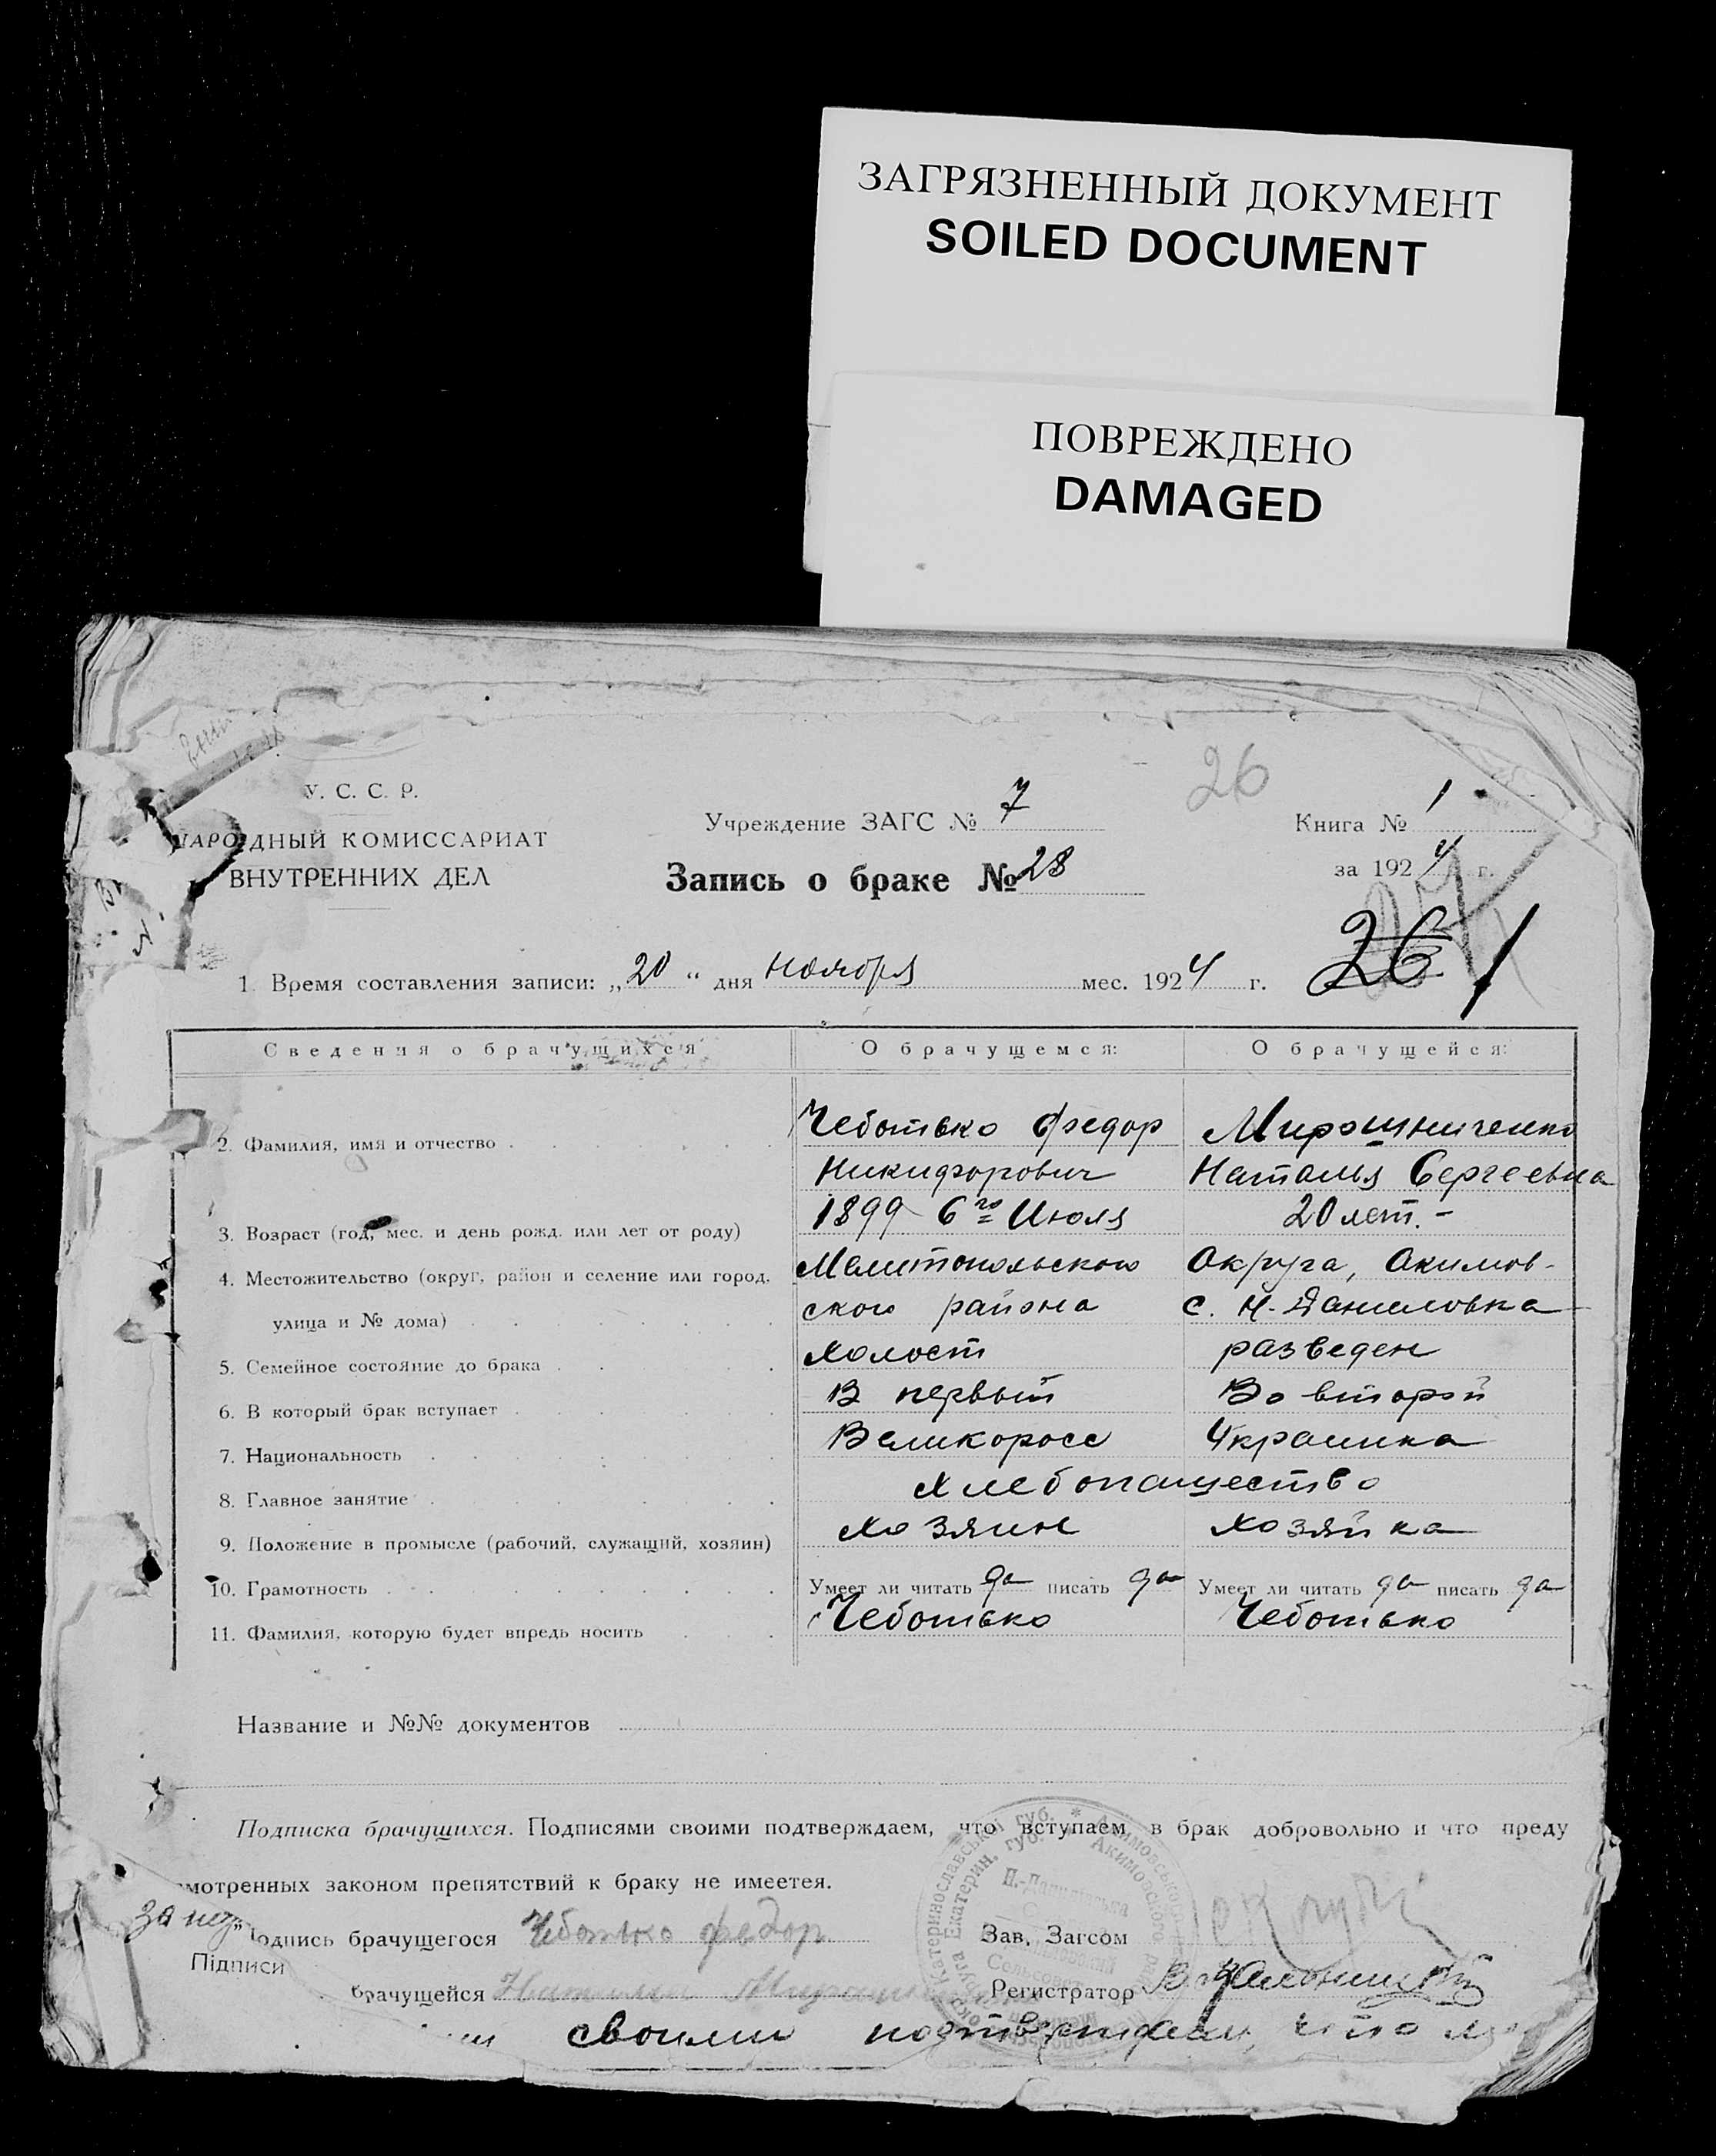 ЗАГРЯЗНЕННЫЙ ДОКУМЕНТ
SOILED DOCUMENT
ПОВРЕЖДЕНО
DAMAGED
26
У. С. С. Р.
НАРОДНЫЙ КОМИССАРИАТ
ВНУТРЕННИХ ДЕЛ
Учреждение ЗАГС № 7
Запись о браке № 28
Книга № 1
за 1924 г.
26
1. Время составления записи: „20“ дня Ноября мес. 1924 г.
Сведения о брачущихся О брачущемся: О брачущейся:
2. Фамилия, имя и отчество Чеботько Федор Мирошниченко
Никифорович Наталья Сергеевна
3. Возраст (год, мес. и день рожд. или лет от роду) 1899 6го Июля 20 лет. -
4. Местожительство (округ, район и селение или город, Мелитопольского Округа, Акимов-
улица и № дома) ского района с. Н-Даниловка
5. Семейное состояние до брака холост разведен
6. В который брак вступает В первый Во второй
7. Национальность Великоросс Украинка
8. Главное занятие Хлебопашество
9. Положение в промысле (рабочий, служащий, хозяин) хозяин хозяйка
10. Грамотность Умеет ли читать да писать да Умеет ли читать да писать да
11. Фамилия, которую будет впредь носить Чеботько Чеботько
Название и №№ документов
Подписка брачущихся. Подписями своими подтверждаем, что вступаем в брак добровольно и что преду
смотренных законом препятствий к браку не имеется.
Подпись брачущегося Чботько федор Зав. Загсом
Підписи
брачущейся Регистратор
своими подтверждаем, что